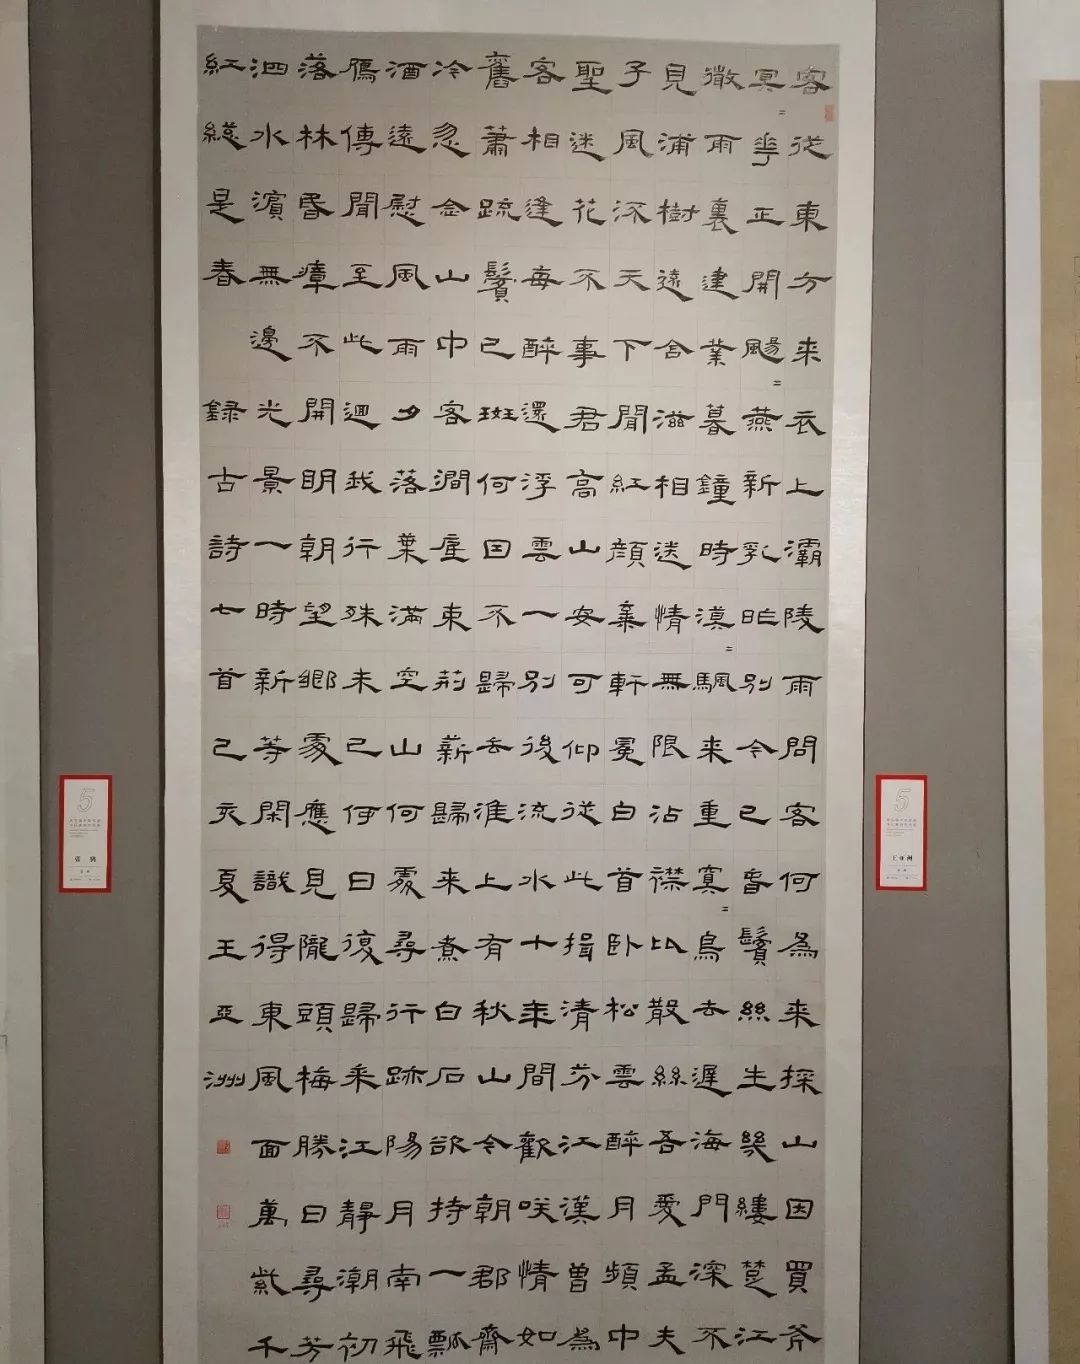 客從東方来衣上灞陵雨問客何為来採山因買斧
冥=華正開颺=燕新乳昨別今已春鬢絲生幾縷楚江
微雨裏建業暮鐘時漠=颿来重冥=鳥去遲海門深不
見浦樹遠含滋相送情無限沾襟比散絲吾愛孟夫
子風流天下聞紅顔棄軒冕白首卧松雲醉月頻中
聖迷花不事君高山安可仰從此揖清芬江漢曾為
客相逢每醉還浮雲一別後流水十年間歡咲情如
舊蕭疏鬢已斑何因不歸去淮上有秋山今朝郡齋
冷忽念山中客澗底束荊薪歸来煮白石欲持一瓢
酒遠慰風雨夕落葉滿空山何處尋行跡陽月南飛
鴈傳聞至此迴我行殊未已何日復歸来江靜潮初
落林昏瘴不開明朝望鄉處應見隴頭梅勝日尋芳
泗水濱無邊光景一時新等閑識得東風面萬紫千
紅總是春 錄古詩七首己亥夏王亞洲
5
王亚洲
5